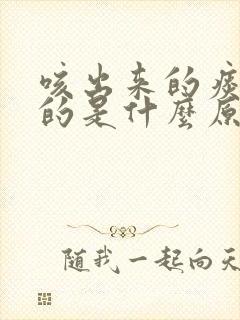 咳出来的痰
的是什麼原
随我一起向天